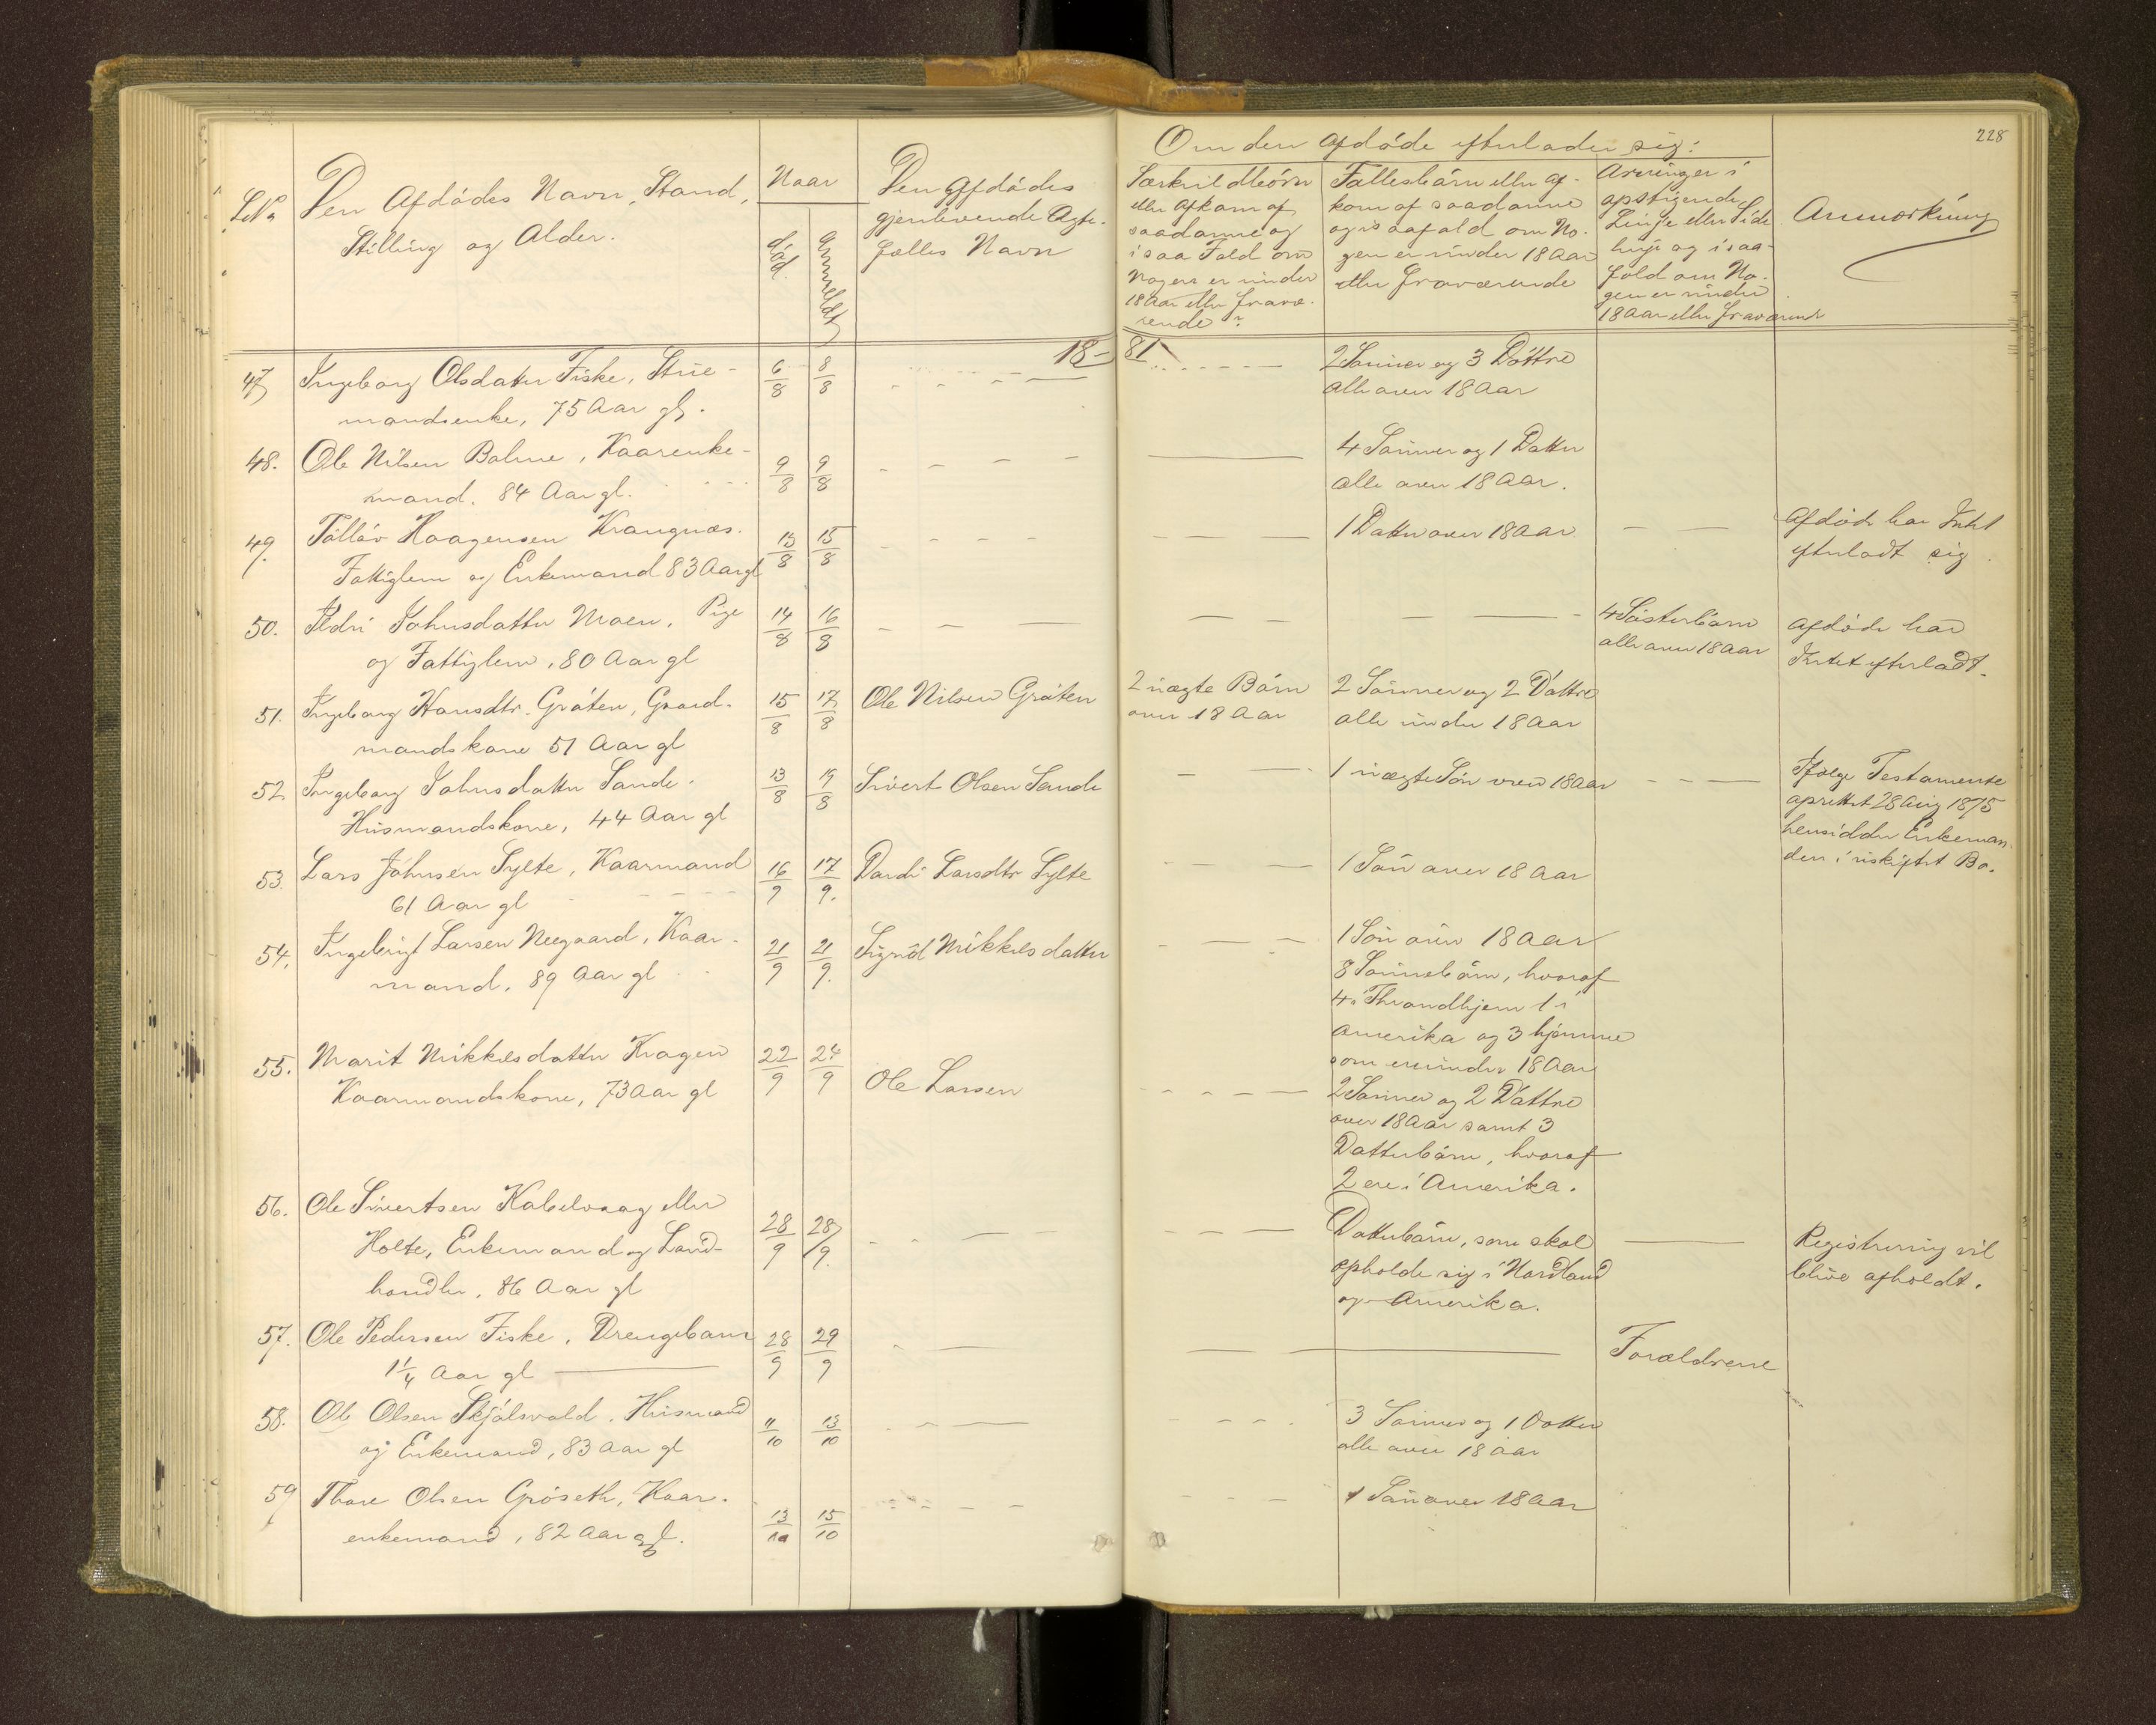 228
Om den Afdöde efterlader sig:
LNo
Den Afdödes Navn, Stand,
Stilling og Alder.
Naar
död
Anmeldt
Den Afdödes
gjenlevende Ægte-
fælles Navn
Særkuldbörn
eller Afkom af
saadanne og
i saa Fald om
Nogen er under
18 Aar eller fravæ-
rende?
Fællesbörn eller Af-
kom af saadanne
og i saafald om No-
gen er under 18 Aar
eller fraværende
Arvinger i
opstigende
Linje eller Side
linje og i saa-
fald om No-
gen er under
18 Aar eller fraværende
Anmærkning
18- 81
47 Ingeborg Olsdatter Fiske, Strie-
mandsenke, 75 Aar gl. 6/8 8/8 2 Sönner og 3 Döttre
alle over 18 Aar
48. Ole Nilsen Bolme, Kaarenke-
mand. 84 Aar gl. 9/8 9/8 4 Sönner og 1 Datter
alle over 18 Aar.
49. Tolløv Haagensen Krangnæs.
Fattiglem og Enkemand 83 Aar gl 13/8 15/8 1 Datter over 18 Aar Afdöde har Intet
efterladt sig
50. Ildri Johnsdatter Moen, Pige
og Fattiglem, 80 Aar gl 14/8 16/8 4 Sösterbörn
alle over 18 Aar Afdöde har
Intet efterladt.
51. Ingeborg Hansdtr. Gröten, Gaard-
mandskone 51 Aar gl 15/8 17/8 Ole Nilsen Gröten 2 uægte Börn
over 18 Aar 2 Sönner og 2 Döttre
alle under 18 Aar
52 Ingeborg Johnsdatter Sande.
Husmandskone, 44 Aar gl 13/8 19/8 Sivert Olsen Sande 1 uægte Sön over 18 Aar Ifølge Testamente
oprettet 28 Aug 1875
hensidder Enkeman-
den i uskiftet Bo.
53. Lars Johnsen Sylte, Kaarmand
61 Aar gl 16/9 17/9. Dordi Larsdtr Sylte 1 Sön over 18 Aar
54. Ingebrigt Larsen Neegaard, Kaar-
mand, 89 Aar gl 21/9 21/9. Sigrid Mikkelsdatter 1 Sön over 18 Aar
8 Sönnebörn, hvoraf
4 i Throndhjem 1 i
Amerika og 3 hjemme
som er under 18 Aar
55. Marit Mikkelsdatter Kragen
Kaarmandskone, 73 Aar gl 22/9 24/9 Ole Larsen 2 Sönner og 2 Döttre
over 18 Aar samt 3
Datterbörn, hvoraf
2 ere i Amerika.
56. Ole Sivertsen Kabelvaag eller
Holte, Enkemand og Land-
handler, 86 Aar gl 28/9 28/9. Datterbörn, som skal
opholde sig i Nordland
og Amerika. Registrering vil
blive afholdt.
57. Ole Pedersen Fiske, Drengebarn
1 1/4 Aar gl 28/9 29/9 Forældrene
58. Ole Olsen Skjölsvold, Husmand
og Enkemand, 83 Aar gl 11/10 13/10 3 Sönner og 1 Datter
alle over 18 Aar
59 Thore Olsen Gröseth, Kaar-
enkemand, 82 Aar gl. 13/10 15/10 1 Sön over 18 Aar